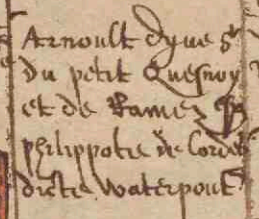 Arnoult dyue sr
du petit Quesnoy
et de Ramez
philippote de Cordes
dicte waterpont